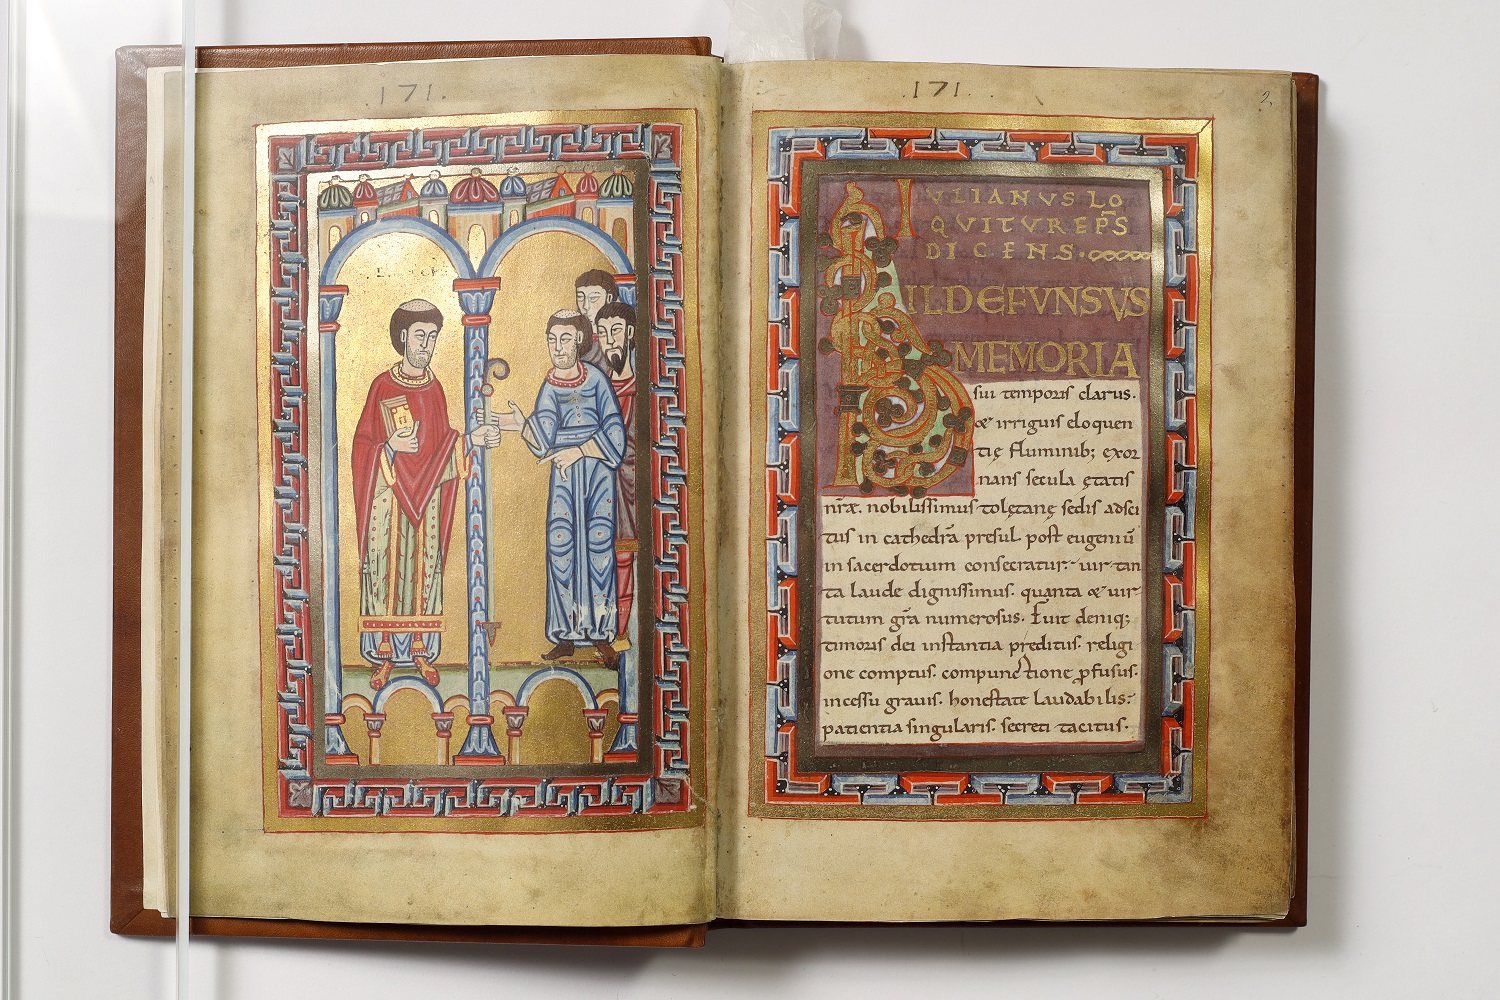 .171.
.171.
2
IVLIANVS LO
QVITVR EP̄S
DICENS.
ILDEFVNSVS
MEMORIA
sui temporis clarus.
& irriguis eloquen
tię fluminib; exor
nans secula ętatis
nr̄æ. nobilissimus tolętanę sedis adsci
tus in cathedrā presul. post eugeniū
in sacerdotium consecratur. uir tan
ta laude dignissimus. quanta & uir
tutum gr̄a numerosus. Fuit deniq;
timoris dei instantia pręditus. religi
one comptus. compunctione ꝓfusus.
incessu grauis. honestate laudabilis.
patientia singularis. secreti tacitus.